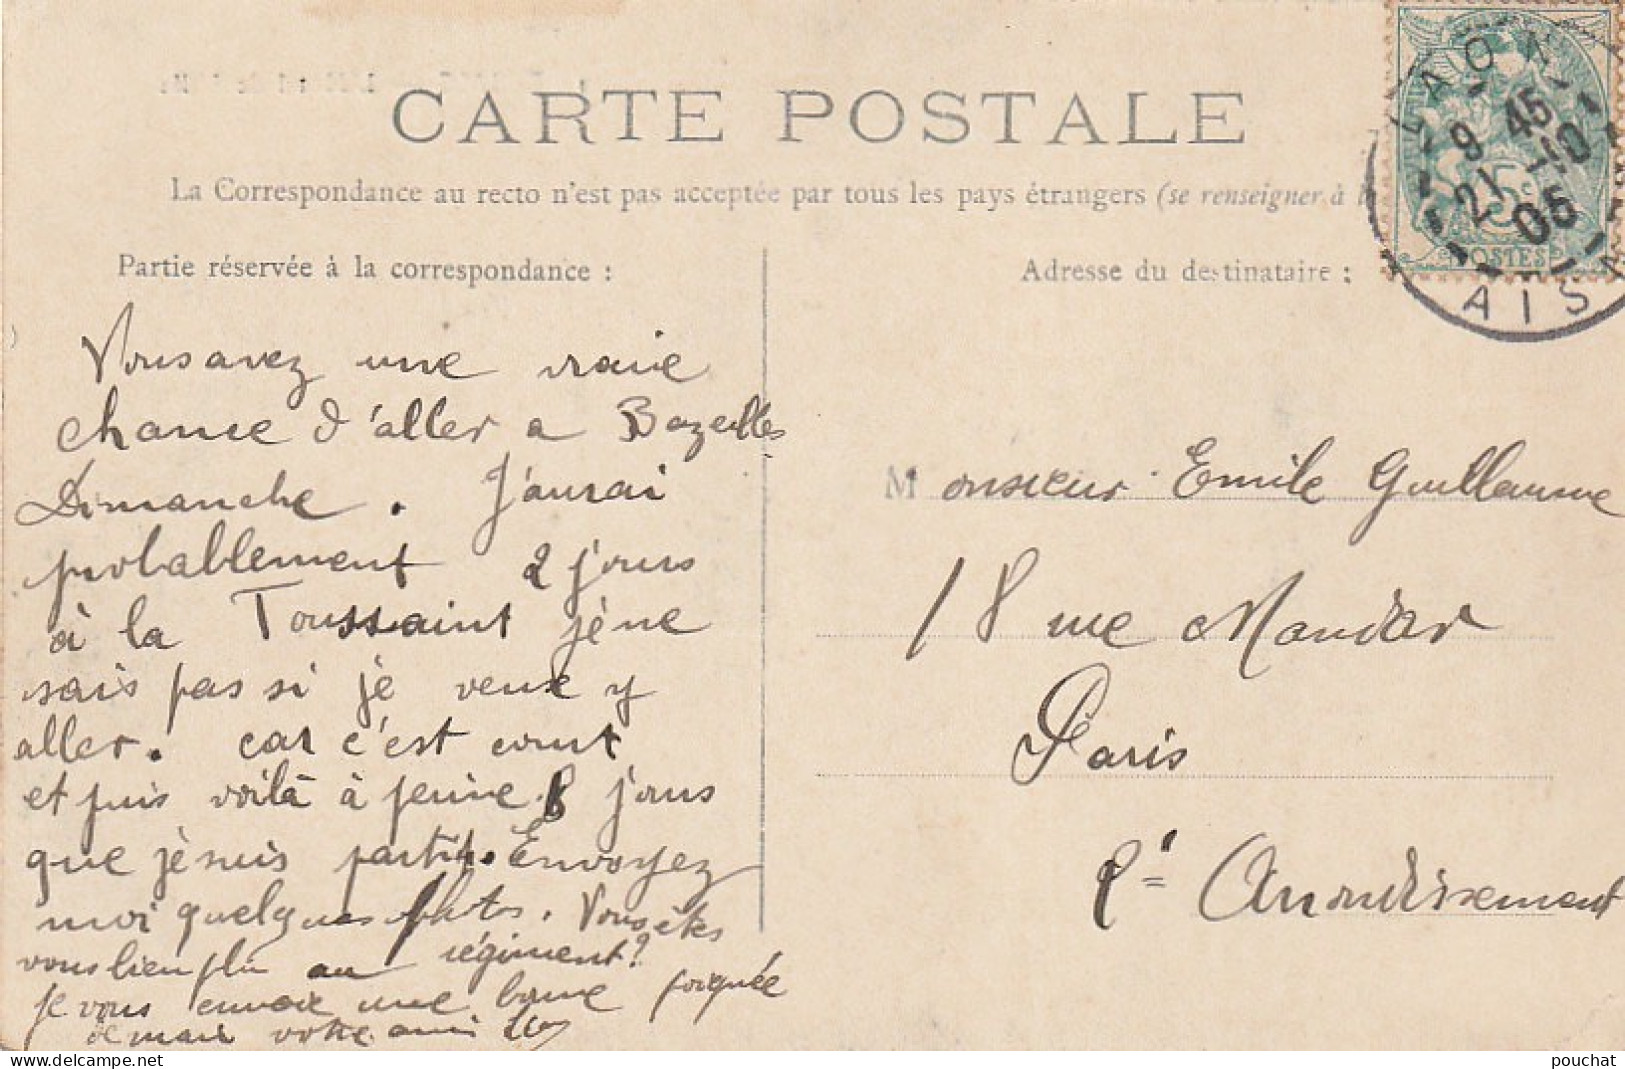 CARTE POSTALE
La Correspondance au recto n'est pas acceptée par tous les pays étrangers (se renseigner à l
Partie réservée à la correspondance :
Vous avez une vraie
chance d'aller a Bazeilles
Dimanche. J'aurai
probablement 2 jours
à la Toussaint je ne
sais pas si je veux y
aller. car c'est court
et puis voilà à peine 8 jours
que je suis parti. Envoyez
moi quelques photos. Vous êtes
vous bien plu au régiment?
je vous envoie une bonne poignée
de main votre ami
Adresse du destinataire :
Monsieur Emile Guillaume
18 rue Mandar
Paris
2e Arrondissement
LAON
9 45
21 -10
05
AISN
5c
POSTES
delcampe.net
pouchat